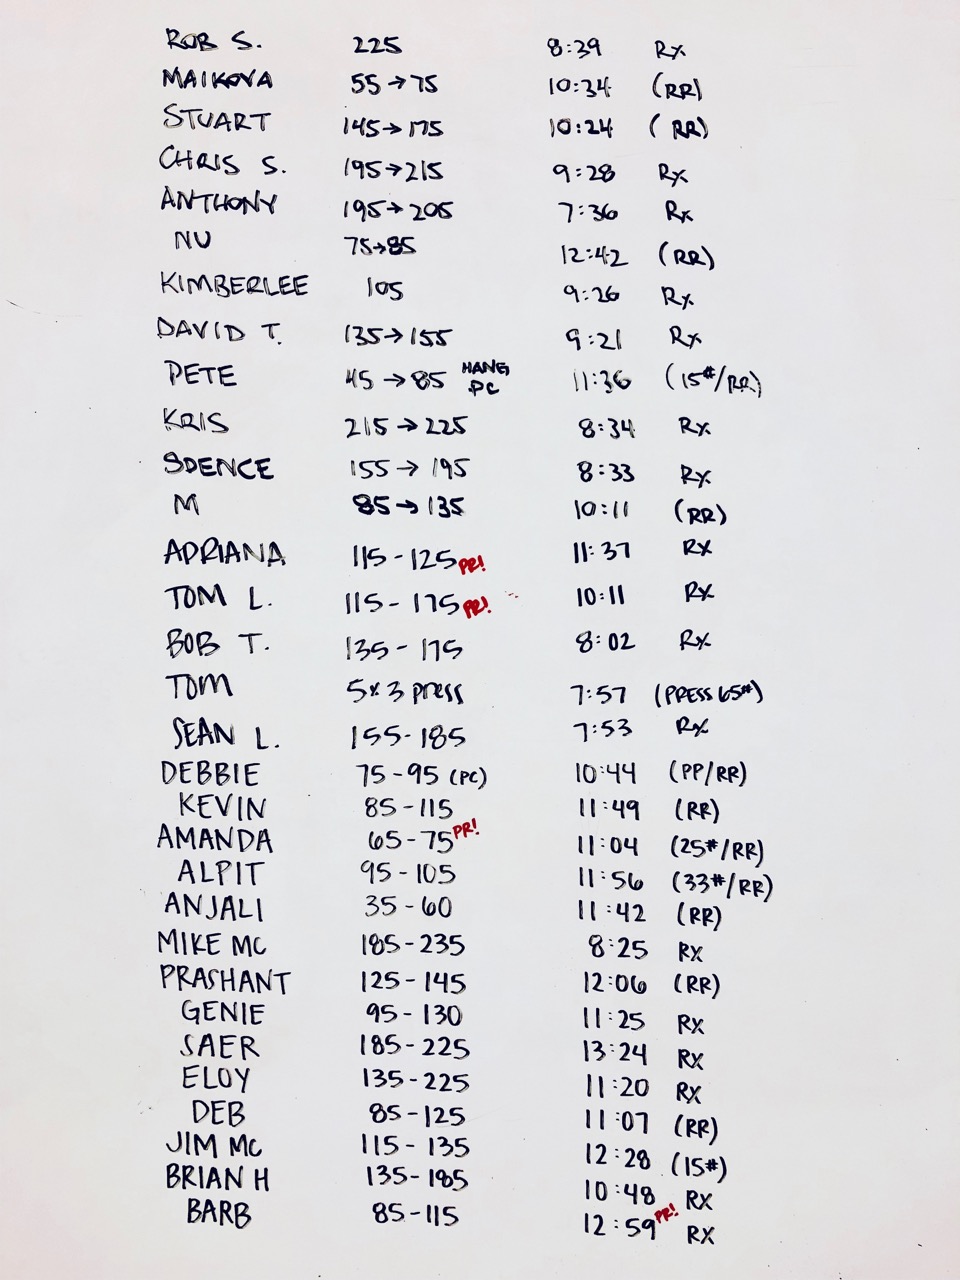 ROB S. 225 8:39 Rx
MAIKOVA 55→75 10:34 (RR)
STUART 145→175 10:24 (RR)
CHRIS S. 195→215 9:28 Rx
ANTHONY 195→205 7:36 Rx
NU 75→85 12:42 (RR)
KIMBERLEE 105 9:26 Rx
DAVID T. 135→155 9:21 Rx
PETE 45→85 HANG PC 11:36 (15#/RR)
KRIS 215→225 8:34 Rx
SPENCE 155→195 8:33 Rx
M 85→135 10:11 (RR)
ADRIANA 115-125 PR! 11:37 Rx
TOM L. 115-175 PR! 10:11 Rx
BOB T. 135-175 8:02 Rx
TOM 5x3 press 7:57 (PRESS 65#)
SEAN L. 155-185 7:53 Rx
DEBBIE 75-95 (PC) 10:44 (PP/RR)
KEVIN 85-115 11:49 (RR)
AMANDA 65-75 PR! 11:04 (25#/RR)
ALPIT 95-105 11:56 (33#/RR)
ANJALI 35-60 11:42 (RR)
MIKE MC 185-235 8:25 RX
PRASHANT 125-145 12:06 (RR)
GENIE 95-130 11:25 RX
SAER 185-225 13:24 RX
ELOY 135-225 11:20 RX
DEB 85-125 11:07 (RR)
JIM MC 115-135 12:28 (15#)
BRIAN H 135-185 10:48 RX
BARB 85-115 12:59 PR! RX